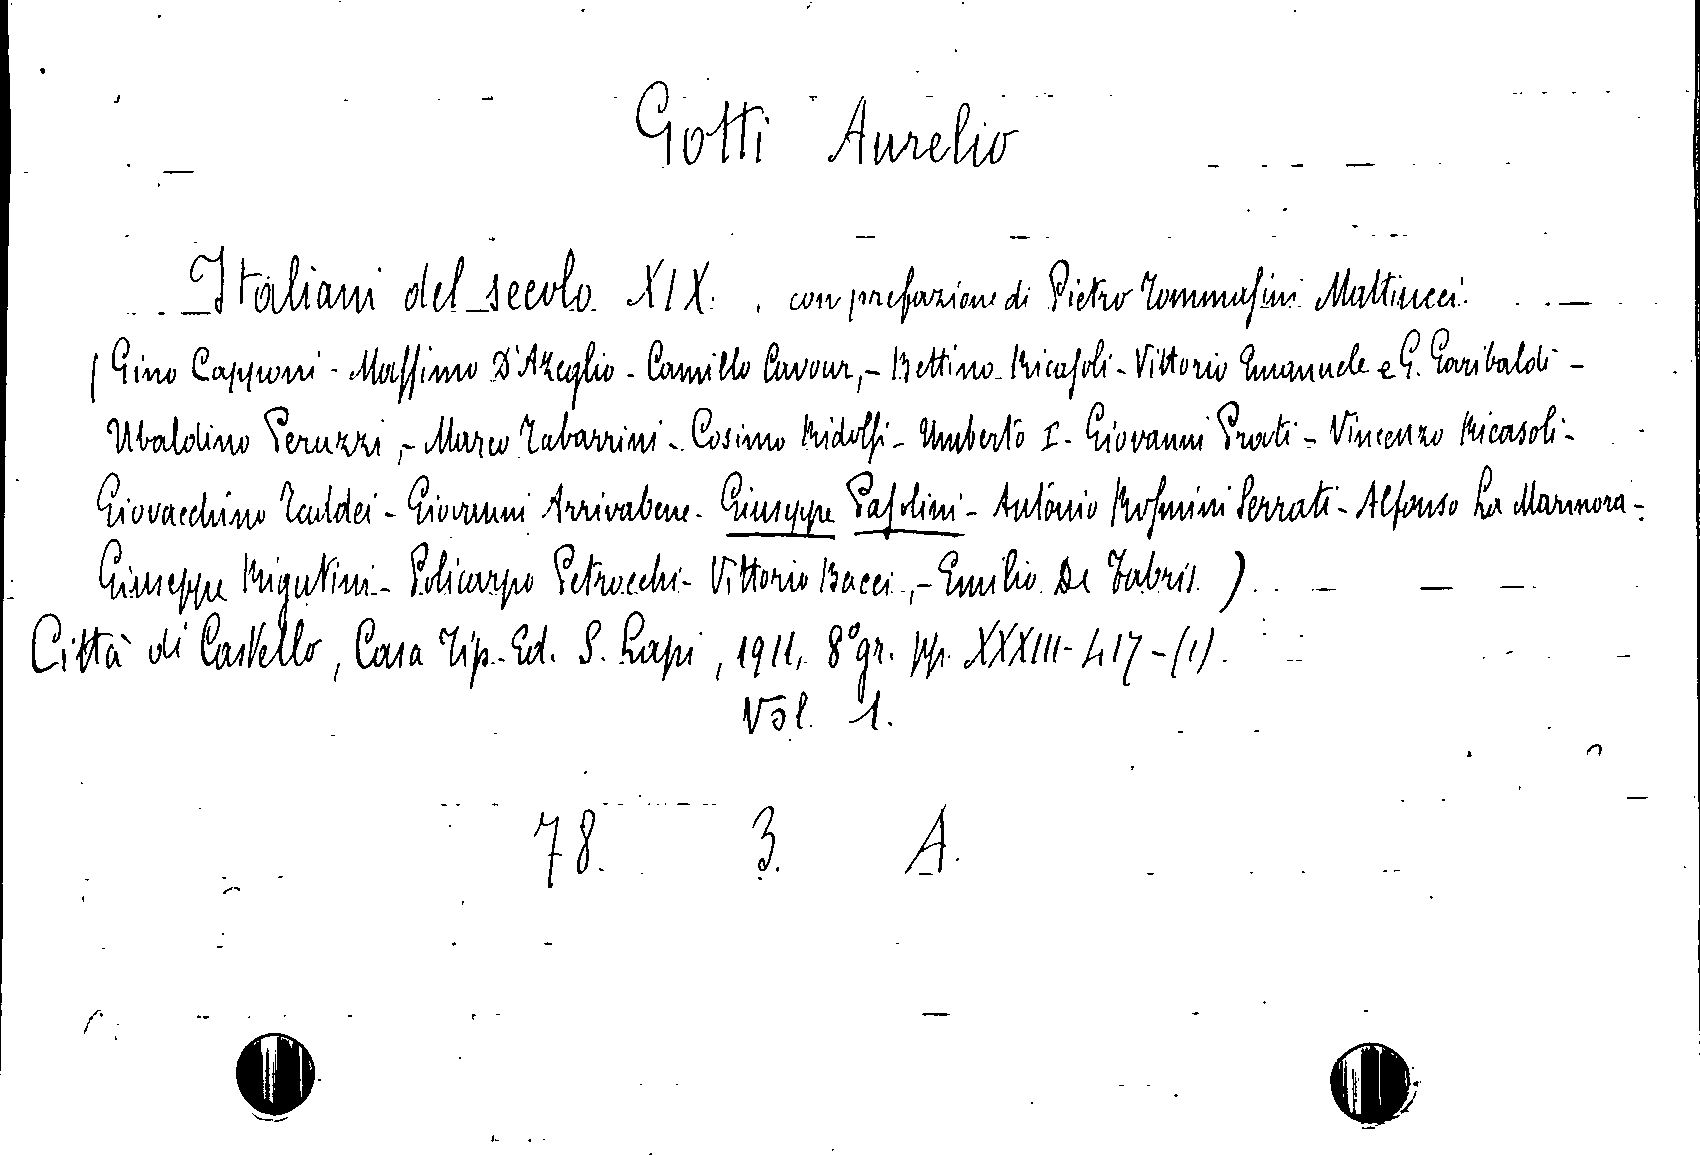 Gotti Aurelio
Italiani del secolo XIX. con prefazione di Pietro Tommasini Mattiucci.
(Gino Capponi - Massimo D'Azeglio - Camillo Cavour, - Bettino Ricasoli - Vittorio Emanuele e G. Garibaldi -
Ubaldino Peruzzi, - Marco Tabarrini - Cosimo Ridolfi - Umberto I - Giovanni Prati - Vincenzo Ricasoli -
Giovacchino Taddei - Giovanni Arrivabene - Giuseppe Pasolini - Antonio Rosmini Serrati - Alfonso La Marmora -
Giuseppe Rigutini - Policarpo Petrocchi - Vittorio Bacci, - Emilio De Fabris.)
Città di Castello, Casa Tip. Ed. S. Lapi, 1911, 8° gr. pp. XXXIII - 417 - (1).
Vol. 1.
78. 3. A.